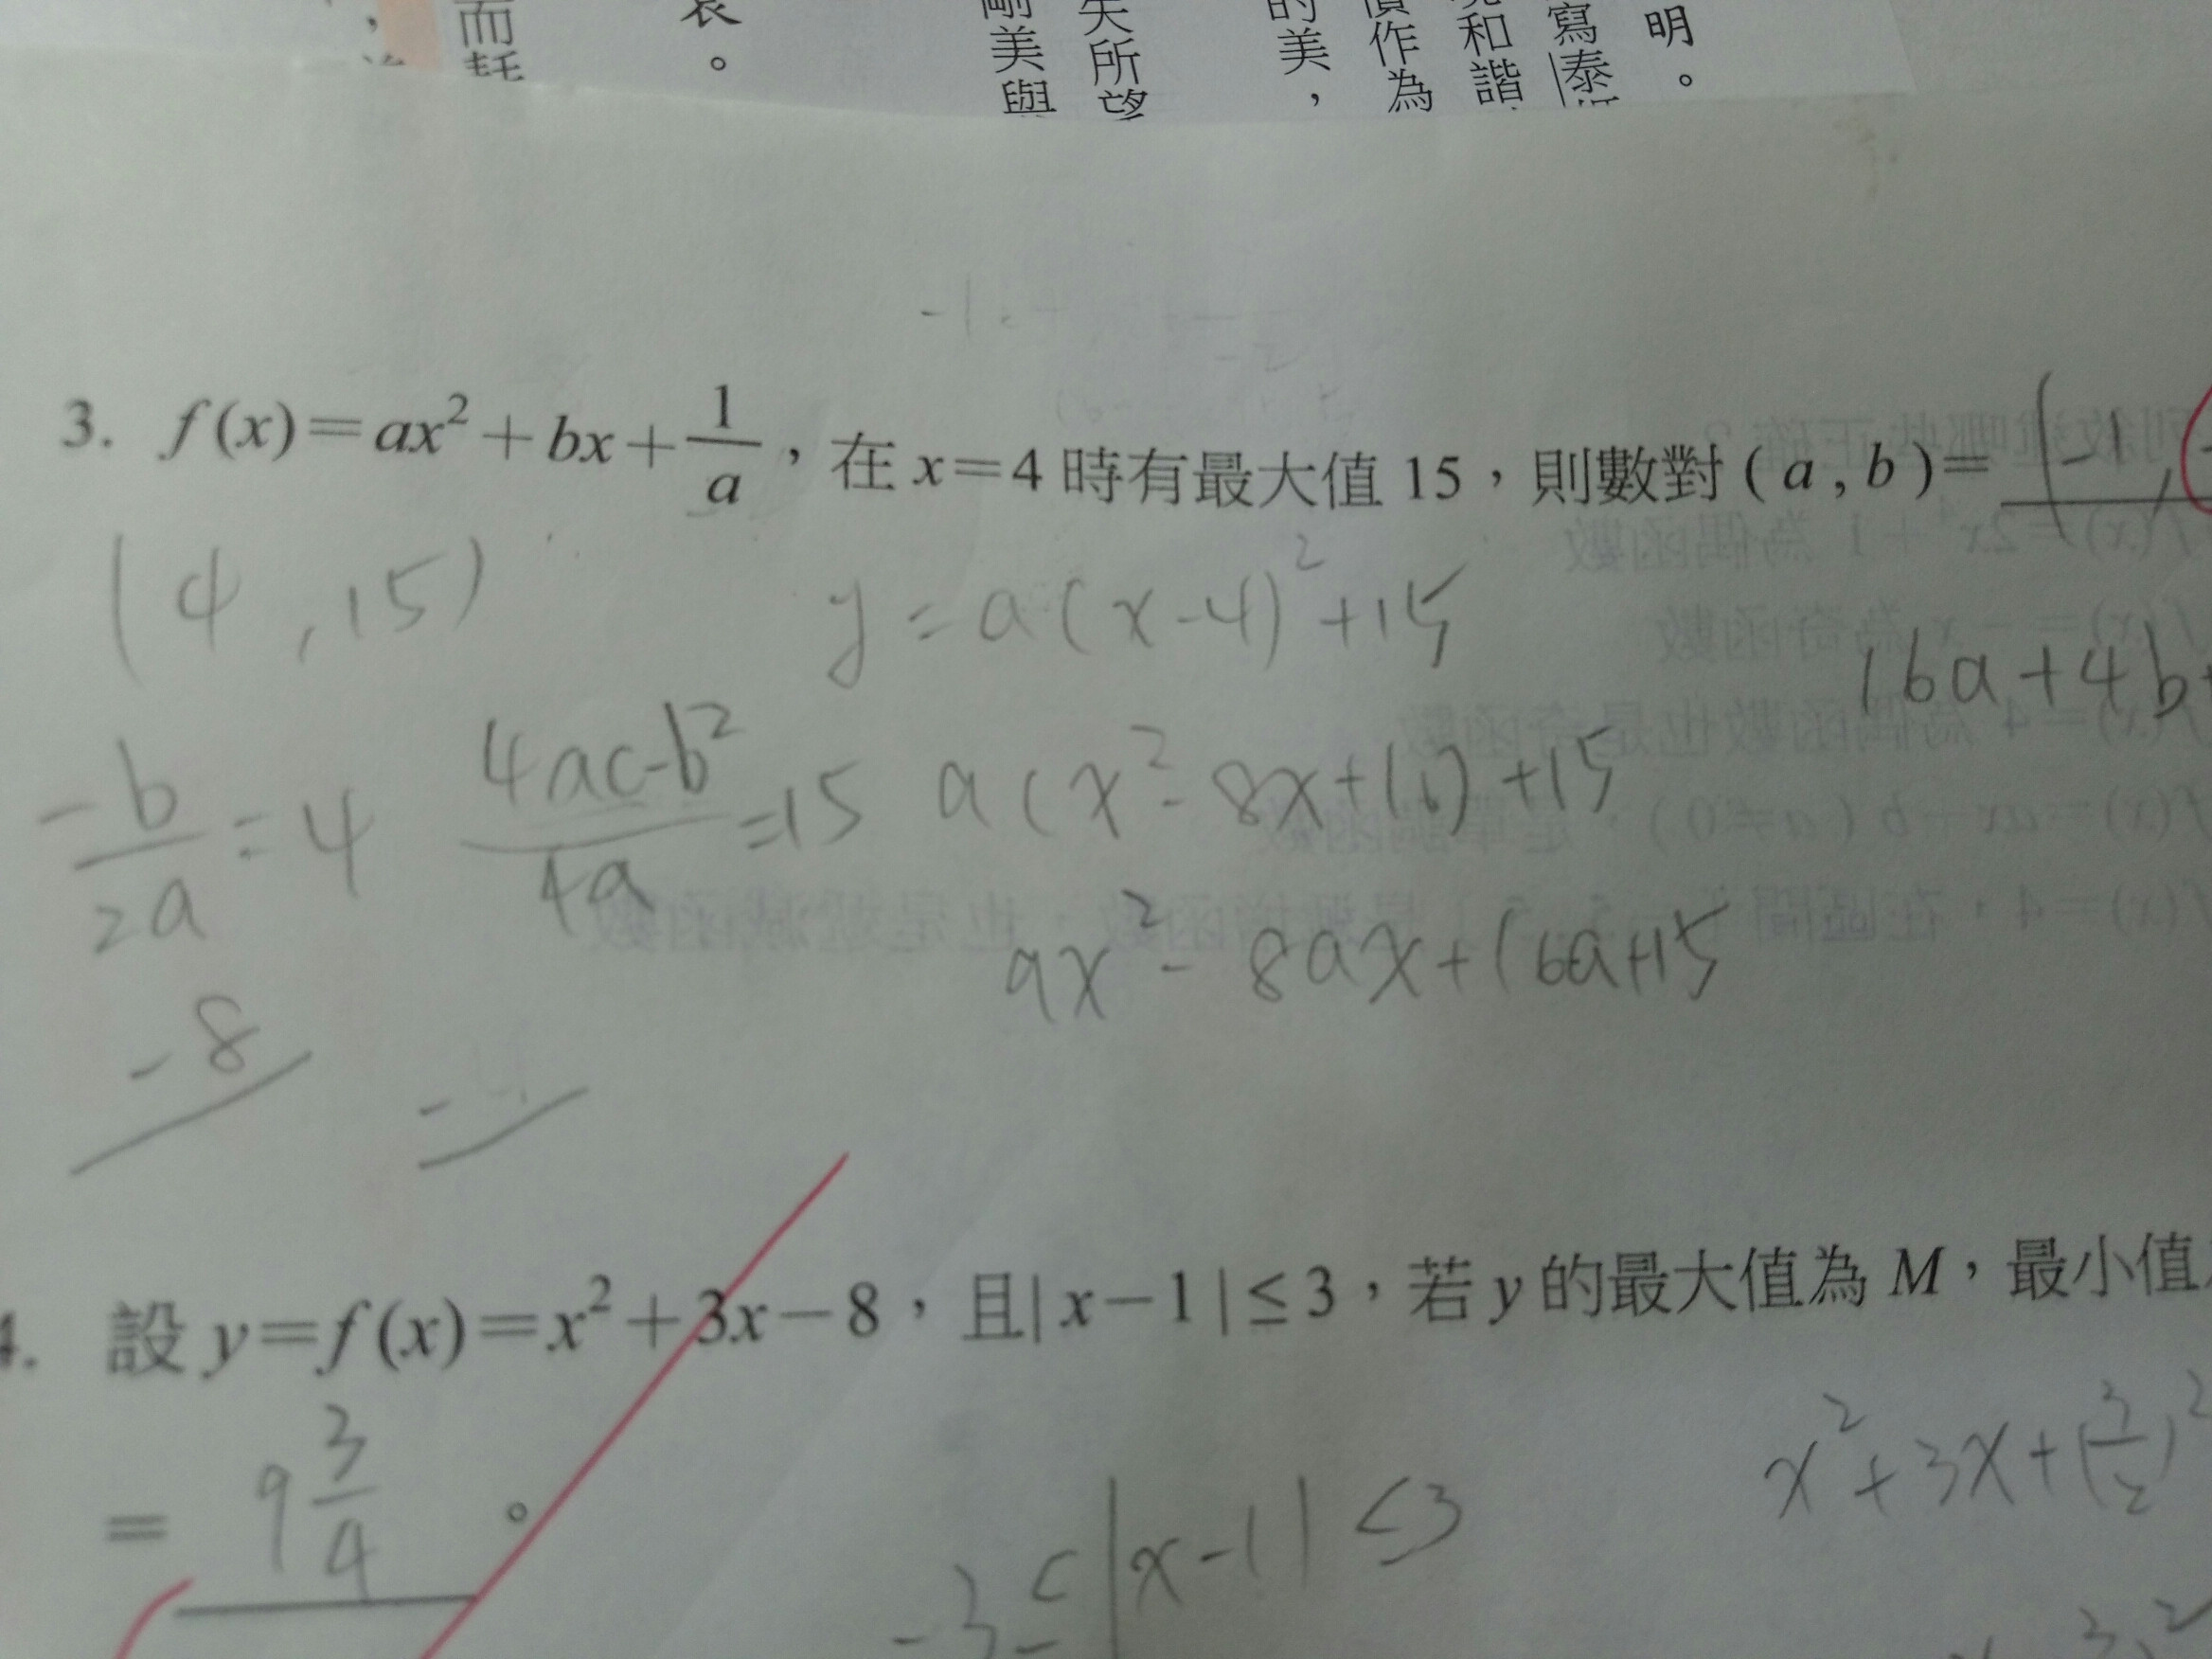 而
衷。
剛美與
失所望
的美，
作為
和諧
寫泰
明。
3. f(x)=ax²+bx+1/a，在x=4時有最大值15，則數對(a,b)=(-1,
(4,15)
y=a(x-4)²+15
16a+4b+
-b/2a=4
4ac-b²/4a=15
a(x²-8x+16)+15
ax²-8ax+16a+15
-8
4. 設y=f(x)=x²+3x-8，且|x-1|≤3，若y的最大值為M，最小值
= 9 3/4 。
x²+3x+(3/2)²
-3≤|x-1|≤3